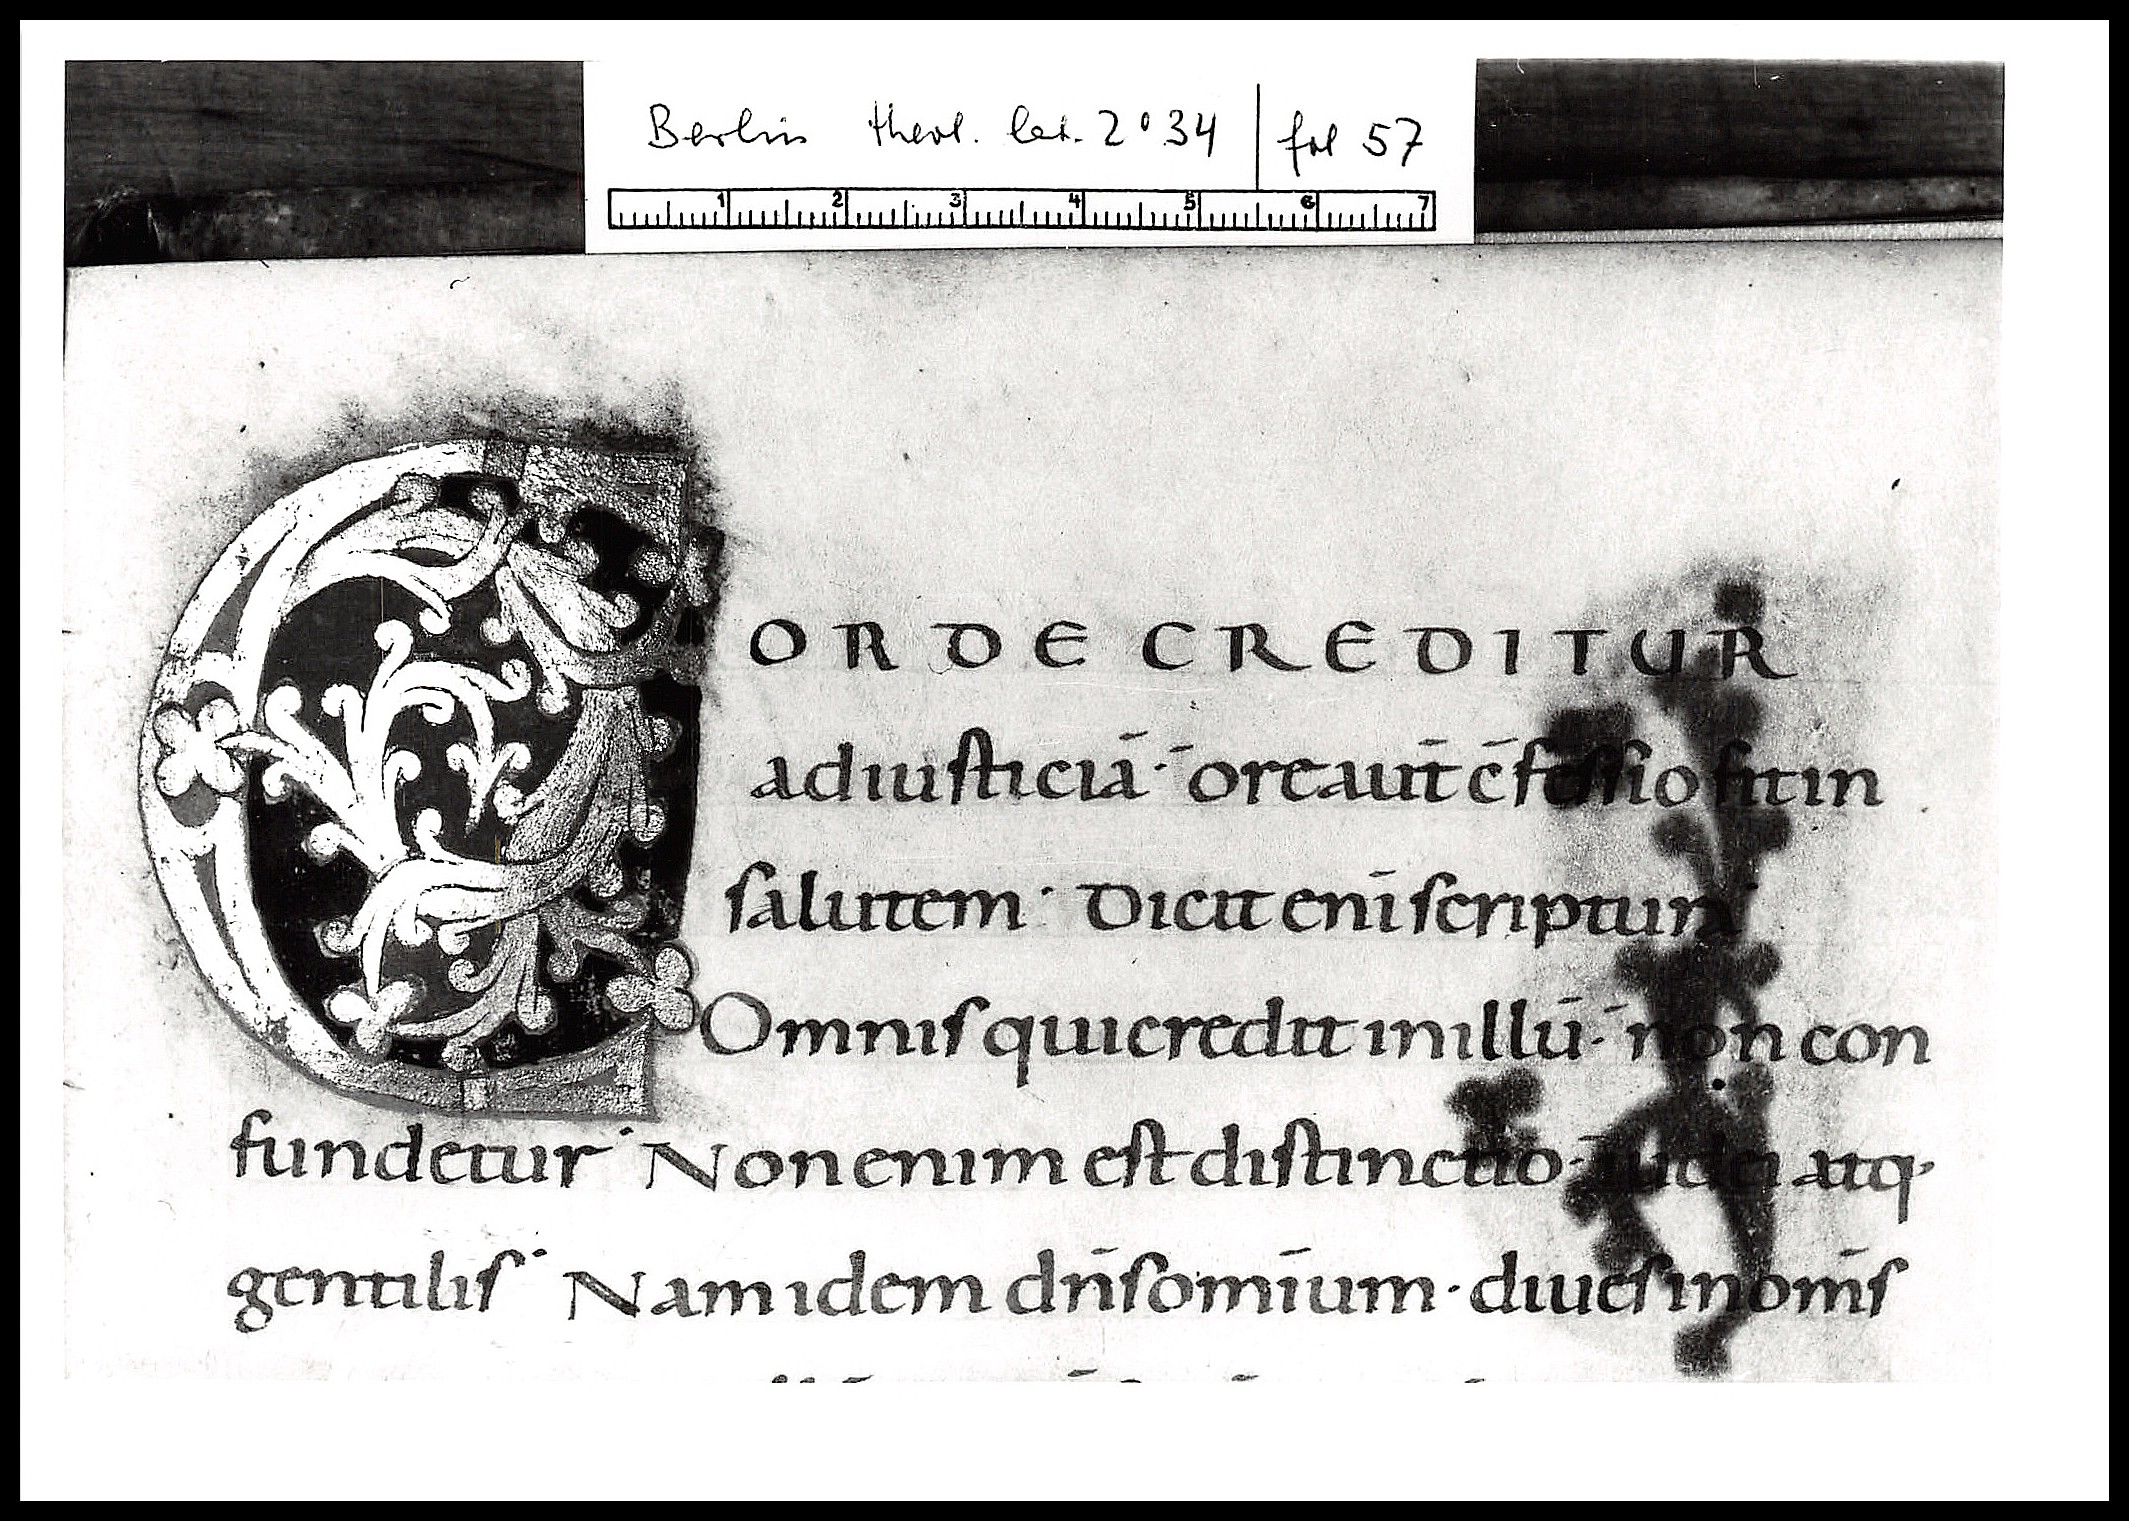 Berlin theol. lat. 2° 34 | fol 57
1 2 3 4 5 6 7
CORDE CREDITUR
adiusticiā· ore aut̄ c̄fessio fit in
salutem· Dicit enī scriptura
Omnis qui credit in illū· non con
fundetur· Non enim est distinctio· iudei atq·
gentilis· Nam idem dn̄s omīum· diues in om̄s